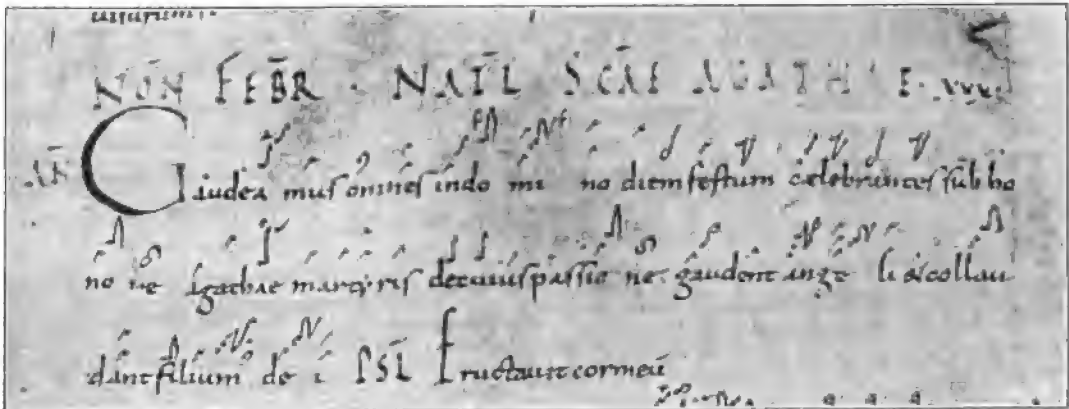 NON FEBR · NATL SCAE AGATH
AN Gaudea mus omnes indo mi no diem festum caelebrantes sub ho
no re agathae martyris decuius passio ne gaudent ange li &collau
dant filium de i PSL Eructauit cormeū